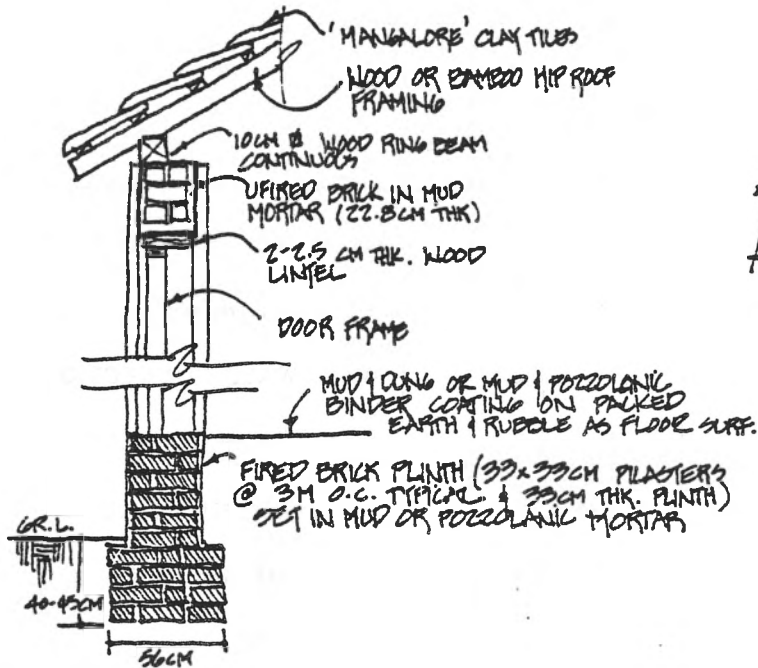 'MANGALORE' CLAY TILES
WOOD OR BAMBOO HIP ROOF
FRAMING
10CM Ø WOOD RING BEAM
CONTINUOUS
UFIRED BRICK IN MUD
MORTAR (22.8CM THK)
2-2.5 CM THK. WOOD
LINTEL
DOOR FRAME
MUD & DUNG OR MUD & POZZOLANIC
BINDER COATING ON PACKED
EARTH & RUBBLE AS FLOOR SURF.
FIRED BRICK PLINTH (33x33CM PILASTERS
@ 3M O.C. TYPICAL & 33CM THK. PLINTH)
SET IN MUD OR POZZOLANIC MORTAR
GR.L.
40-45CM
56CM